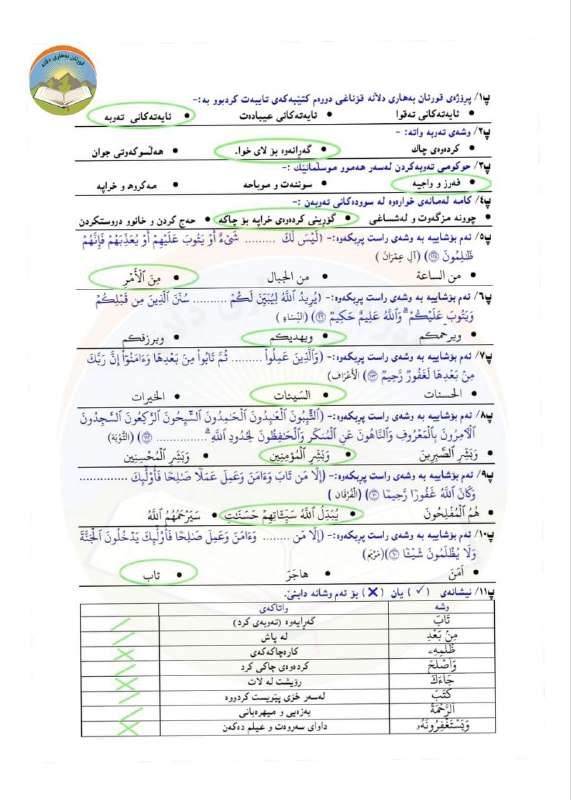 قورئان بەهاری دڵانە
پ١/ پرۆژەی قورئان بەهاری دڵانە قۆناغی دووەم کتێبەکەی تایبەت کردبوو بە:-
• ئایەتەکانی تەقوا • ئایەتەکانی عیبادەت • ئایەتەکانی تەوبە
پ٢/ وشەی تەوبە واتە: -
• کردەوەی چاك • گەڕانەوە بۆ لای خوا. • هەڵسوکەوتی جوان
پ٣/ حوکومی تەوبەکردن لەسەر هەموو موسڵمانێك :-
• فەرز و واجبە • سوننەت و موباحە • مەکروه و خراپە
پ٤/ کامە لەمانەی خوارەوە لە سوودەکانی تەوبەن :-
• چوونە مزگەوت و لەشساغی • گۆڕینی کردەوەی خراپە بۆ چاکە • حەج کردن و خانوو دروستکردن
پ٥/ ئەم بۆشاییە بە وشەی راست پڕبکەوە:- (لَيْسَ لَكَ ......... شَيْءٌ أَوْ يَتُوبَ عَلَيْهِمْ أَوْ يُعَذِّبَهُمْ فَإِنَّهُمْ
ظَٰلِمُونَ ﴿١٢٨﴾ (آل عِمْرَان )
• من الساعة • من الجبال • مِنَ ٱلْأَمْرِ
پ٦/ ئەم بۆشاییە بە وشەی راست پڕبکەوە:- (يُرِيدُ ٱللَّهُ لِيُبَيِّنَ لَكُمْ .......... سُنَنَ ٱلَّذِينَ مِن قَبْلِكُمْ
وَيَتُوبَ عَلَيْكُمْ ۗ وَٱللَّهُ عَلِيمٌ حَكِيمٌ ﴿٢٦﴾ (النِّسَاء )
• ويرحمكم • ويهديكم • ويرزقكم
پ٧/ ئەم بۆشاییە بە وشەی راست پڕبکەوە:- (وَٱلَّذِينَ عَمِلُوا۟ ......... ثُمَّ تَابُوا۟ مِنۢ بَعْدِهَا وَءَامَنُوٓا۟ إِنَّ رَبَّكَ
مِنۢ بَعْدِهَا لَغَفُورٌ رَّحِيمٌ ﴿١٥٣﴾ (الأَعْرَاف)
• الحسنات • السَّيِّئات • الخيرات
پ٨/ ئەم بۆشاییە بە وشەی راست پڕبکەوە:- (ٱلتَّٰٓئِبُونَ ٱلْعَٰبِدُونَ ٱلْحَٰمِدُونَ ٱلسَّٰٓئِحُونَ ٱلرَّٰكِعُونَ ٱلسَّٰجِدُونَ
ٱلْءَامِرُونَ بِٱلْمَعْرُوفِ وَٱلنَّاهُونَ عَنِ ٱلْمُنكَرِ وَٱلْحَٰفِظُونَ لِحُدُودِ ٱللَّهِ ۗ .............. ﴿١١٢﴾ (التَّوْبَة)
• وَبَشِّرِ ٱلصَّٰبِرِينَ • وَبَشِّرِ ٱلْمُؤْمِنِينَ • وَبَشِّرِ ٱلْمُحْسِنِينَ
پ٩/ ئەم بۆشاییە بە وشەی راست پڕبکەوە:- (إِلَّا مَن تَابَ وَءَامَنَ وَعَمِلَ عَمَلًا صَٰلِحًا فَأُو۟لَٰٓئِكَ ..............
وَكَانَ ٱللَّهُ غَفُورًا رَّحِيمًا ﴿٧٠﴾ ( الْفُرْقَان )
• هُمُ ٱلْمُفْلِحُونَ • يُبَدِّلُ ٱللَّهُ سَيِّـَٔاتِهِمْ حَسَنَٰتٍ • سَيَرْحَمُهُمُ ٱللَّهُ
پ١٠/ ئەم بۆشاییە بە وشەی راست پڕبکەوە:- (إِلَّا مَن ........ وَءَامَنَ وَعَمِلَ صَٰلِحًا فَأُو۟لَٰٓئِكَ يَدْخُلُونَ ٱلْجَنَّةَ
وَلَا يُظْلَمُونَ شَيْـًٔا ﴿٦٠﴾ (مَرْيَم)
• آمَنَ • هاجَرَ • تاب
پ١١/ نیشانەی (✓) یان (X) بۆ ئەم وشانە دابنێ.
وشە واتاکەی
تَابَ گەڕایەوە (تەوبەی کرد) /
مِنۢ بَعْدِ لە پاش /
ظُلْمِهِۦ کارەچاکەکەی X
وَأَصْلَحَ کردەوەی چاکی کرد /
جَآءَكَ رۆیشت لە لات X
كَتَبَ لەسەر خۆی پێویست کردووە /
ٱلرَّحْمَةَ بەزەیی و میهرەبانی /
وَيَسْتَغْفِرُونَهُۥ داوای سەروەت و عیلم دەکەن X